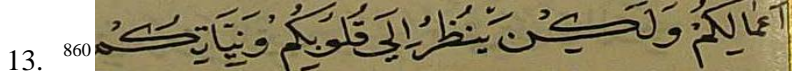 13. 860 اَعْمَالِكُمْ وَلَكِنْ يَّنْظُرُ اِلَى قُلُوْبِكُمْ وَنِيَّاتِكُمْ